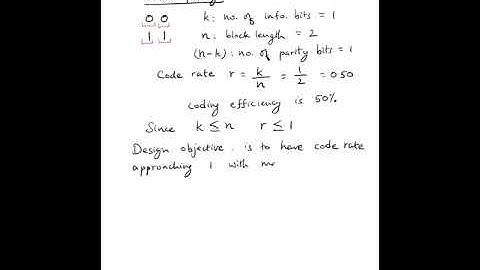 0 0 k: no. of info. bits = 1
1 1 n: block length = 2
(n-k): no. of parity bits = 1
Code rate r = k/n = 1/2 = 0.50
Coding efficiency is 50%.
Since k ≤ n r ≤ 1
Design objective. is to have code rate
approaching 1 with mo